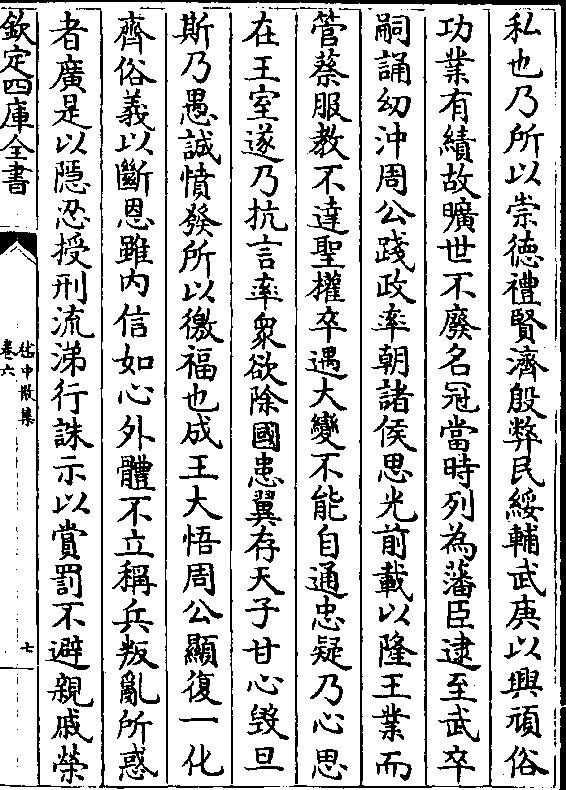 私也乃所以崇德禮賢濟殷弊民綏輔武庚以興頑俗
功業有績故曠世不廢名冠當時列為藩臣逮至武卒
嗣誦幼沖周公踐政率朝諸侯思光前載以隆王業而
管蔡服教不達聖權卒遇大變不能自通忠疑乃心思
在王室遂乃抗言率衆欲除國患翼存天子甘心毀旦
斯乃愚誠憤發所以徼福也成王大悟周公顯復一化
齊俗義以斷恩雖内信如心外體不立稱兵叛亂所惑
者廣是以隱忍授刑流涕行誅示以賞罰不避親戚榮
欽定四庫全書
嵇中散集
卷六
七